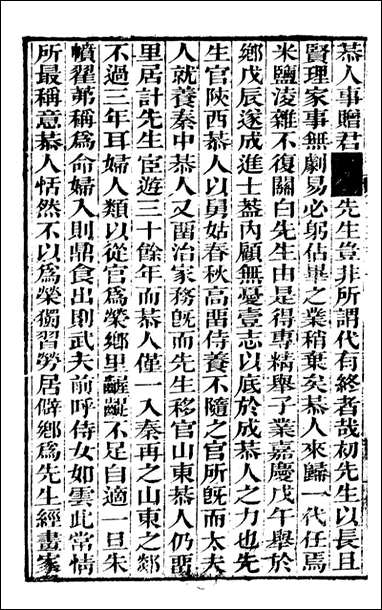 恭人事贈君先生豈非所謂代有終者哉初先生以長且
賢理家事無劇易必躬佔畢之業稍棄矣恭人來歸一代任焉
米鹽淩雜不復關白先生由是得專精舉子業嘉慶戊午舉於
鄉戊辰遂成進士葢內顧無憂壹志以底於成恭人之力也先
生官陝西恭人以舅姑春秋高畱侍養不隨之官所旣而太夫
人就養秦中恭人又畱治家務旣而先生移官山東恭人仍畱
里居計先生宦遊三十餘年而恭人僅一入秦再之山東之郯
不過三年耳婦人類以從官爲榮鄉里齷齪不足自適一旦朱
幩翟茀稱爲命婦入則鼎食出則武夫前呼侍女如雲此常情
所最稱意恭人恬然不以爲榮獨習勞居僻鄉爲先生經畫家